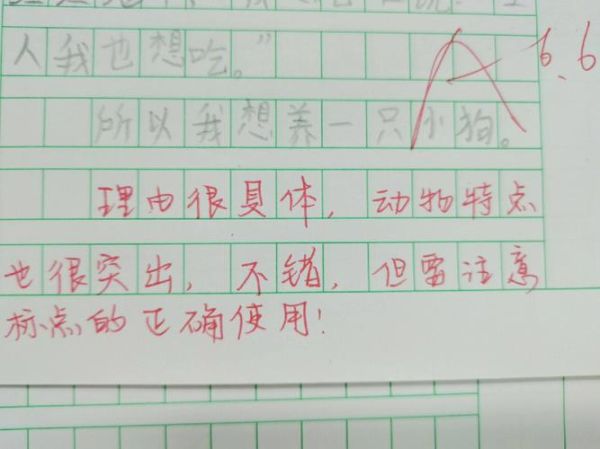 人我也想吃。”
所以我想养一只小狗。
A 6.6
理由很具体，动物特点
也很突出，不错，但需注意
标点的正确使用！